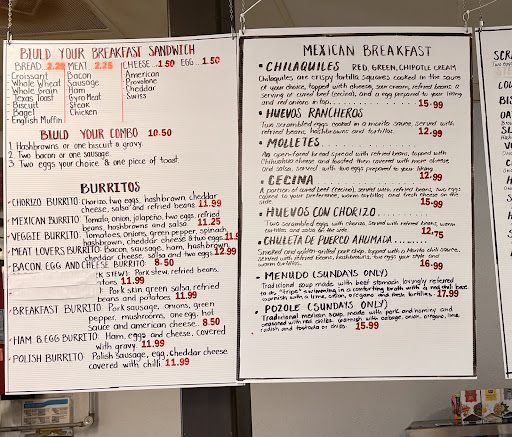 BIULD YOUR BREAKFAST SANDWICH
BREAD 2.25 MEAT 2.25 CHEESE 1.50 EGG 1.50
Croissant Bacon American
Whole Wheat Sausage Provolone
Whole Grain Ham Cheddar
Texas Toast Gyro Meat Swiss
Biscuit Steak
Bagel Chicken
English Muffin
BIULD YOUR COMBO 10.50
1. Hashbrowns or one biscuit & gravy.
2. Two bacon or one sausage
3. Two eggs your choice & one piece of toast
BURRITOS
CHORIZO BURRITO: Chorizo, two eggs, hashbrown, cheddar
cheese, salsa and refried beans 11.99
MEXICAN BURRITO: Tomato, onion, jalapeño, two eggs, refried
beans, hashbrowns and salsa. 11.25
VEGGIE BURRITO: Tomatoes, onions, green pepper, spinach,
hashbrown, cheddar cheese & two eggs 11.9
MEAT LOVERS BURRITO: Bacon, sausage, ham, hashbrown,
cheddar cheese, salsa and two eggs 12.99
BACON EGG AND CHEESE BURRITO 8.50
K STEW): Pork stew, refried beans,
11.99
Pork skin, green salsa, refried
beans and potatoes 11.99
BREAKFAST BURRITO: Pork sausage, onions, green
pepper, mushrooms, one egg, hot
sauce and american cheese. 8.50
HAM & EGG BURRITO: Ham, eggs and cheese, covered
with gravy. 11.99
POLISH BURRITO: Polish sausage, egg, cheddar cheese
covered with chili. 11.99
MEXICAN BREAKFAST
CHILAQUILES RED, GREEN, CHIPOTLE CREAM
Chilaquiles are crispy tortilla squares cooked in the sauce
of your choice, topped with cheese, sour cream, refried beans, a
serving of cured beef (cecina), and a egg prepared to your liking
and red onions in top. 15.99
HUEVOS RANCHEROS
Two scrambled eggs cooked in a morita sauce, served with
refried beans, hashbrowns and tortillas. 12.99
MOLLETES
An open-faced bread spread with refried beans, topped with
Chihuahua cheese and toasted then covered with more cheese
and salsa, served with two eggs prepared to your liking.
12.99
CECINA
A portion of cured beef (cecina), served with refried beans, two eggs
cooked to your preference, warm tortillas, and fresh cheese on the
side 15.99
HUEVOS CON CHORIZO
Two scrambled eggs with chorizo, served with refried beans, warm
tortillas, and salsa on the side. 12.75
CHULETA DE PUERCO AHUMADA
Smoked and golden-grilled pork chop, topped with a Morita chili sauce,
served with refried beans, hashbrowns, two eggs your style and
warm tortillas. 16.99
MENUDO (SUNDAYS ONLY)
Traditional soup made with beef stomach, lovingly referred
to as "tripe" swimming in a comforting broth with a red chili base
Garnish with a lime, onion, oregano and fresh tortillas. 17.99
POZOLE (SUNDAYS ONLY)
Traditional mexican soup, made with pork and hominy and
seasoned with red chiles. Garnish with cabbage, onion, oregano, lime,
radish and tostada or chips. 15.99